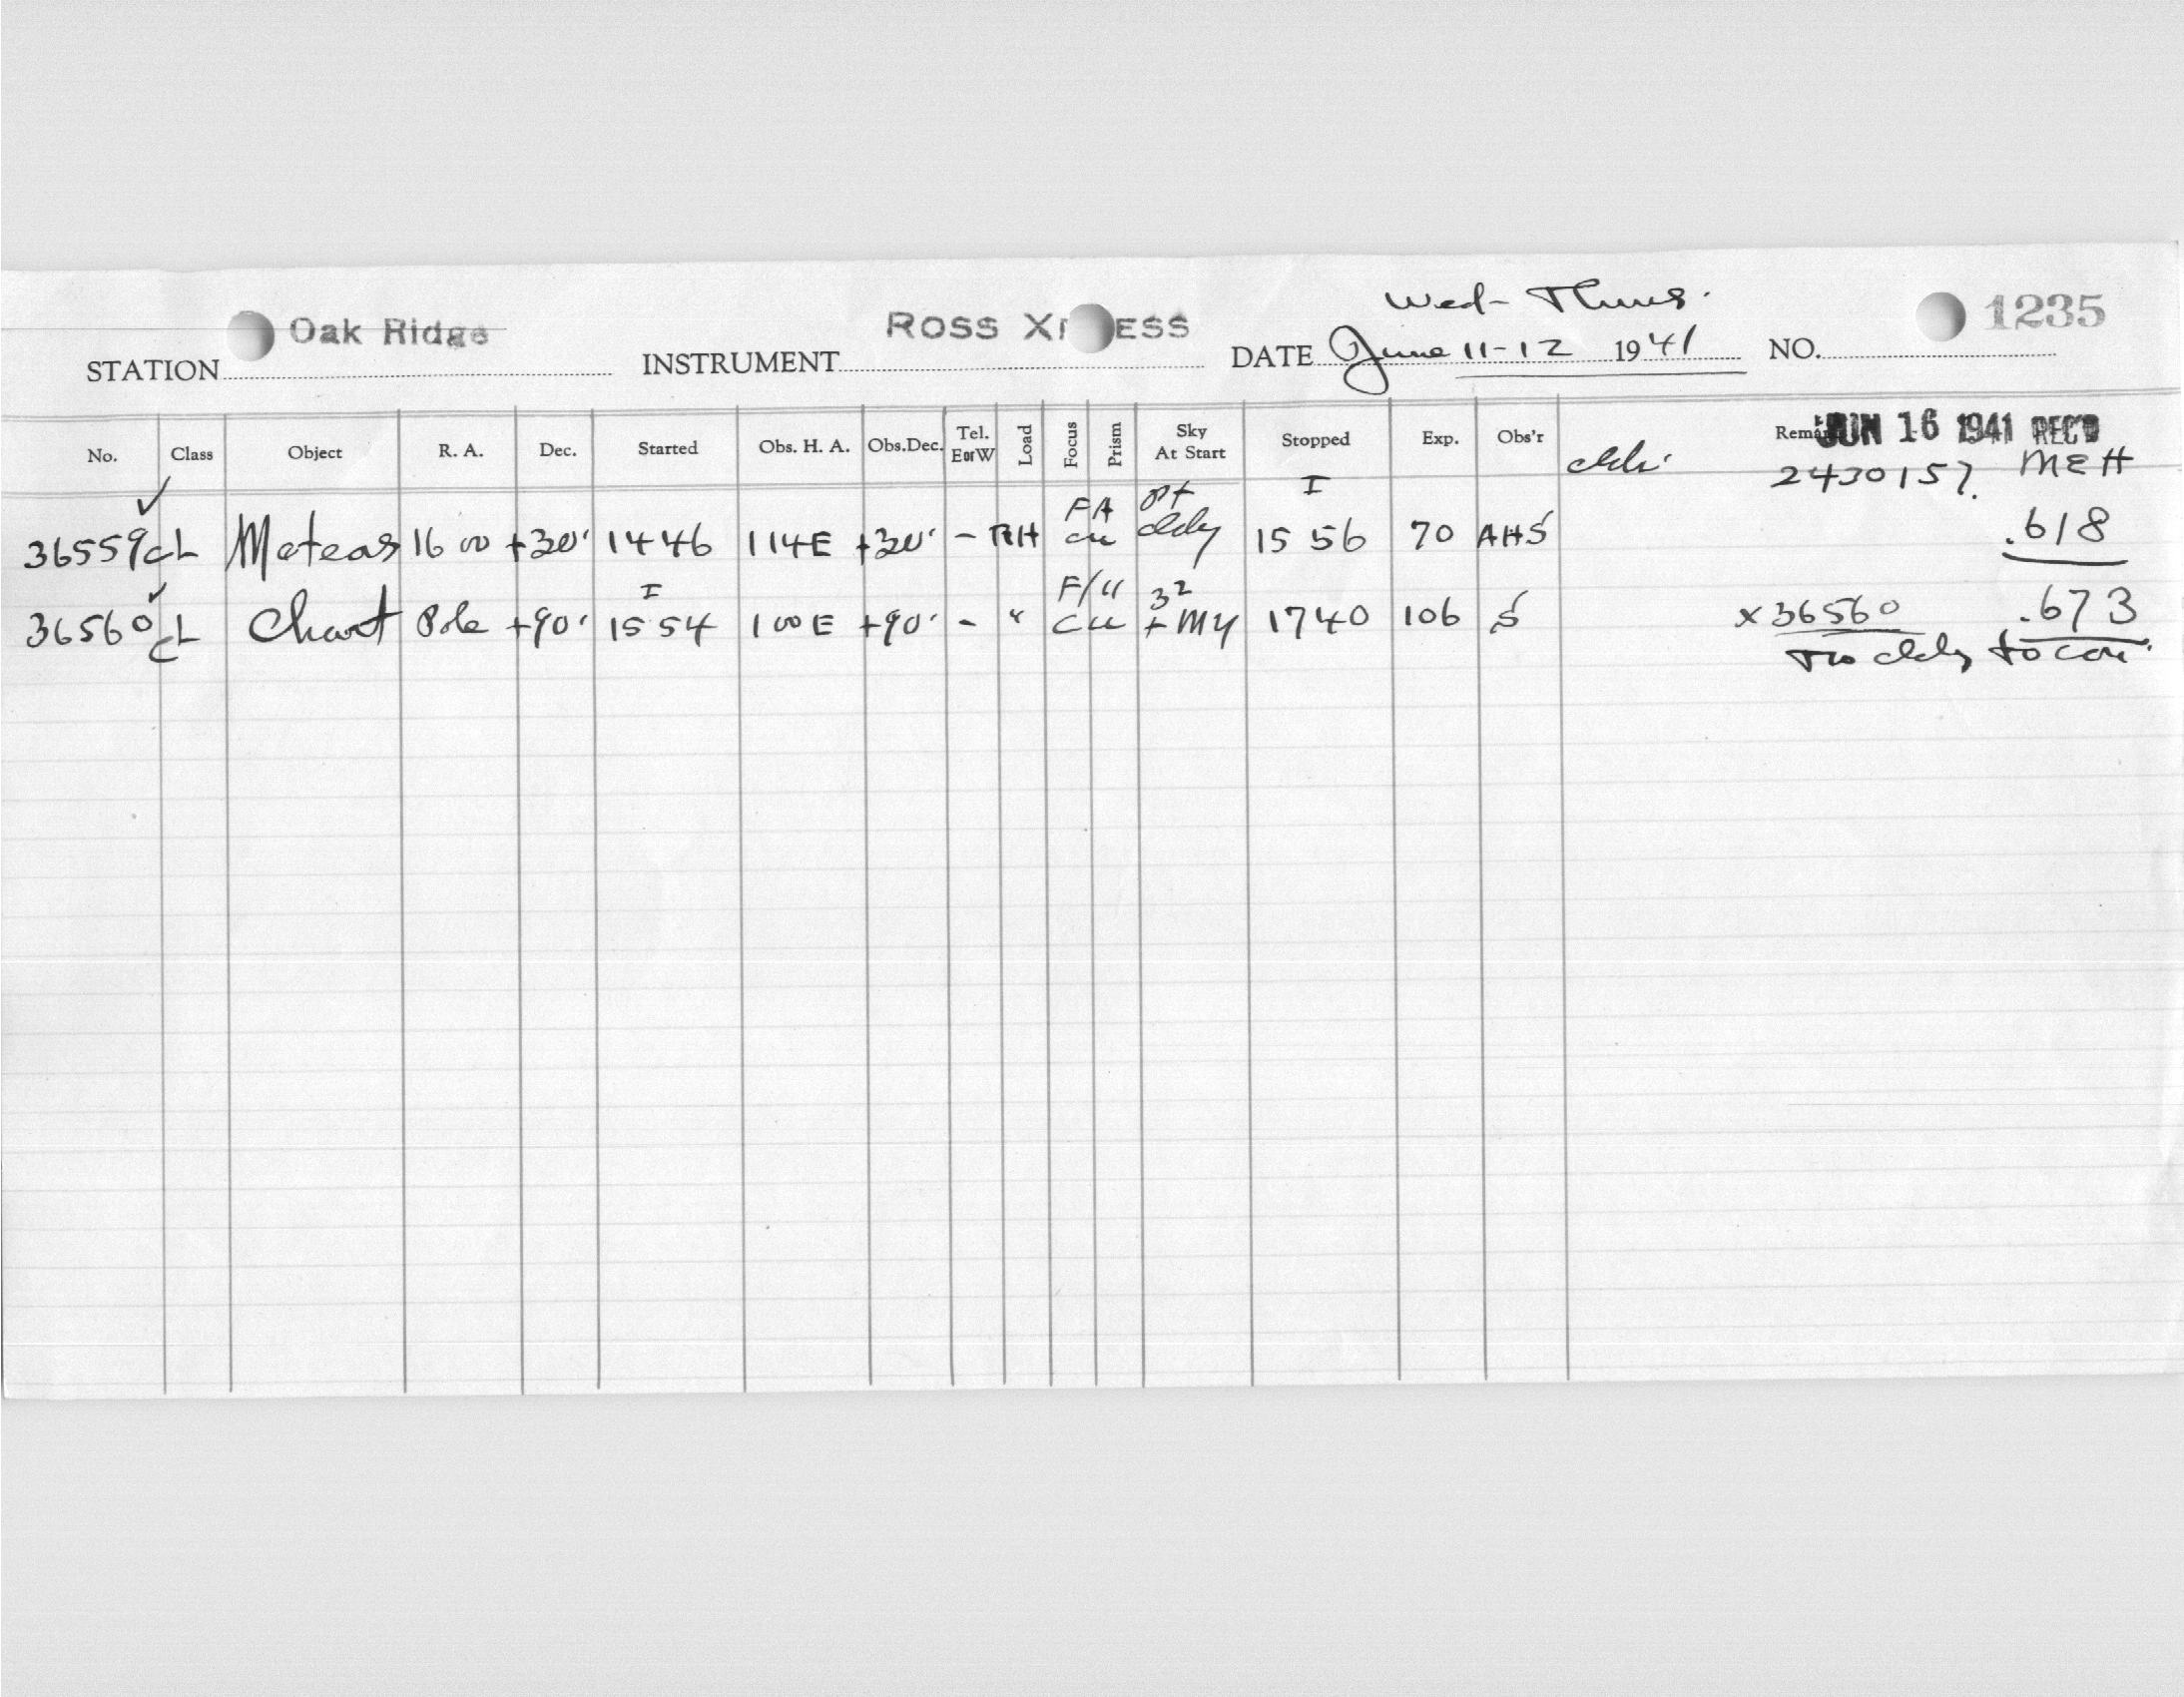 Wed - Thurs.
STATION Oak Ridge INSTRUMENT ROSS X ESS DATE June 11-12 1941 NO. 1235
No. Class Object R. A. Dec. Started Obs. H. A. Obs.Dec. Tel. EorW Load Focus Prism Sky At Start Stopped Exp. Obs'r JUN 16 1941 REC'D
2430157. MEH
36559 CL Meteors 16 00 +30° 1446 114E +30° - RH FA cu pt cldy I 15 56 70 AHS .618
36560 CL Chart Pole +90° I 15 54 100E +90° - " F/11 cu 32 + MY 1740 106 S x 36560 .673
Too cldy to con.